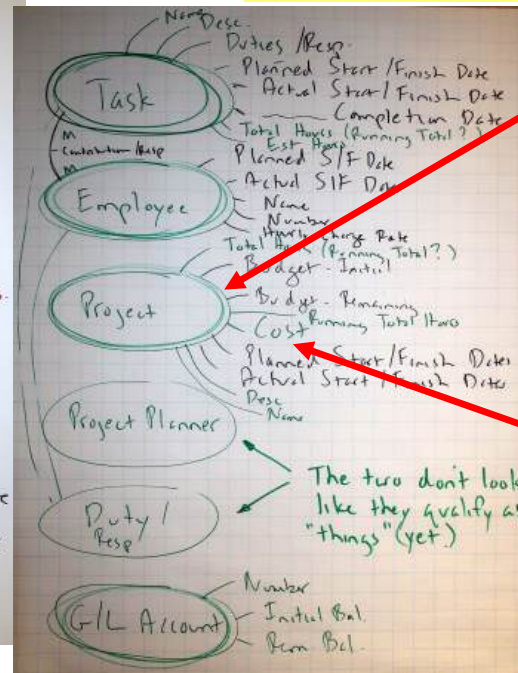 Name
Desc.
Duties / Resp.
Planned Start / Finish Date
Actual Start / Finish Date
Completion Date
Task
Total Hours (Running Total?)
Est Hours
M
Contribution / Resp
M
Planned S/F Date
Actual S/F Date
Employee
Name
Number
Hourly Charge Rate
Total Hours (Running Total?)
Budget - Initial
Project
Budget - Remaining
Running Total Hours
Cost
Planned Start / Finish Dates
Actual Start / Finish Dates
Desc
Name
Project Planner
The two don't look
like they qualify as
"things" (yet)
Duty /
Resp
Number
G/L Account
Initial Bal.
Rem Bal.